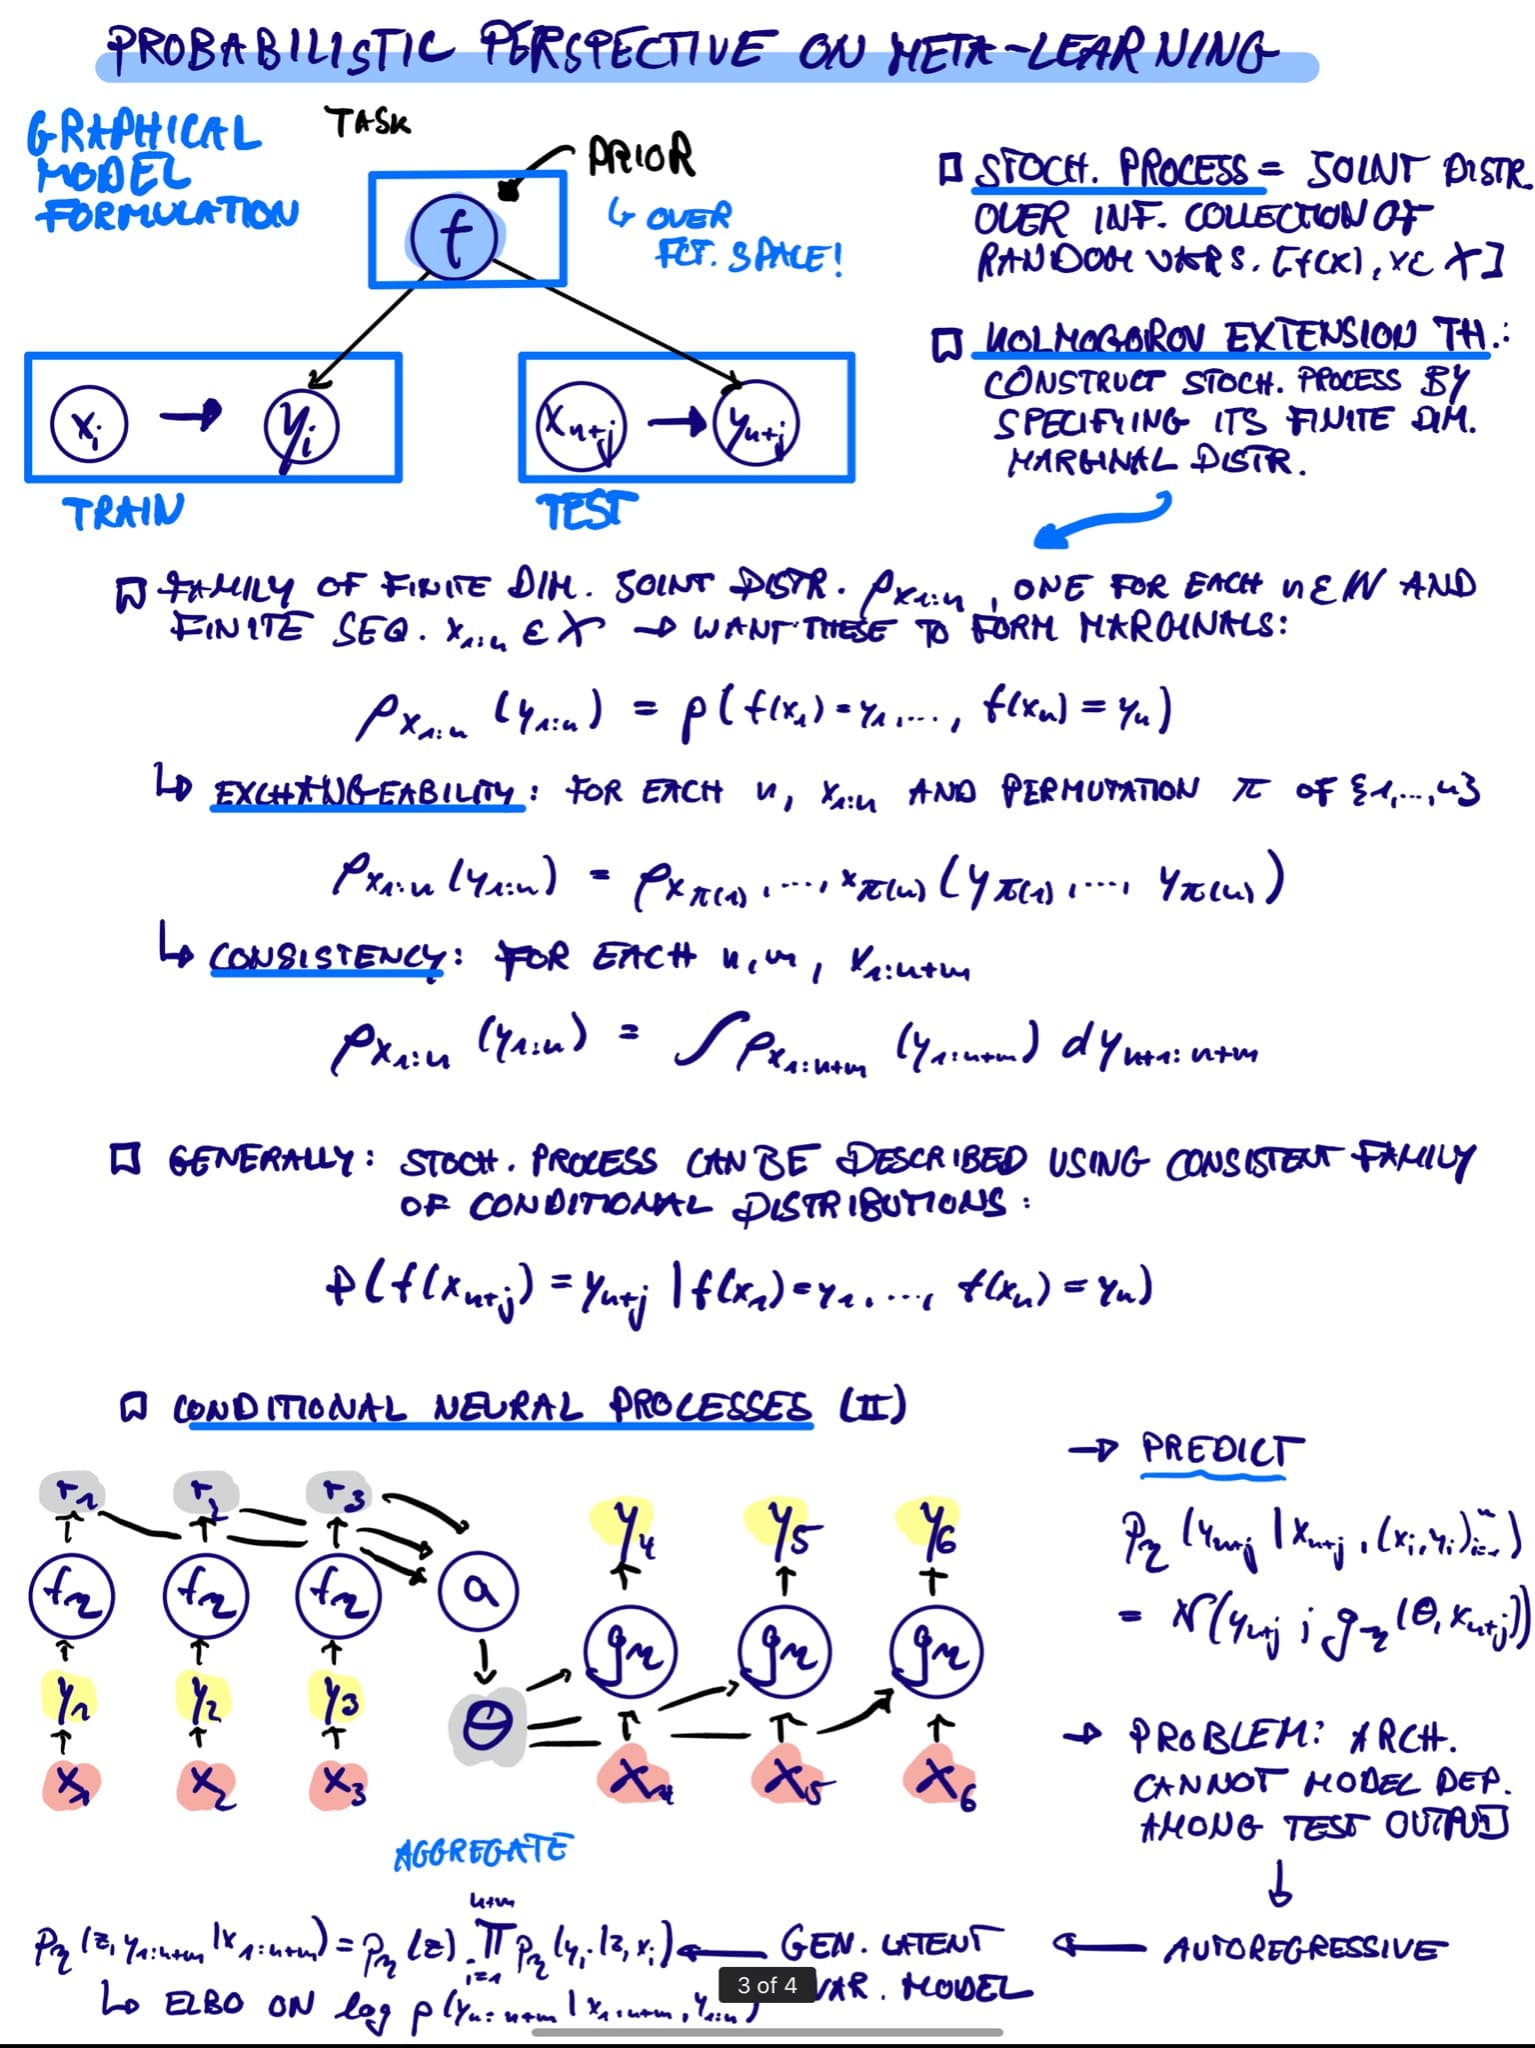 PROBABILISTIC PERSPECTIVE ON META-LEARNING
GRAPHICAL
MODEL
FORMULATION
TASK
PRIOR
↳ OVER
FCT. SPACE!
f
x_i → y_i
TRAIN
x_{n+j} → y_{n+j}
TEST
□ STOCH. PROCESS = JOINT DISTR.
OVER INF. COLLECTION OF
RANDOM VARS. [f(x), x ∈ X]
□ KOLMOGOROV EXTENSION TH.:
CONSTRUCT STOCH. PROCESS BY
SPECIFYING ITS FINITE DIM.
MARGINAL DISTR.
□ FAMILY OF FINITE DIM. JOINT DISTR. ρ_{x_{1:n}}, ONE FOR EACH n ∈ ℕ AND
FINITE SEQ. x_{1:n} ∈ X → WANT THESE TO FORM MARGINALS:
ρ_{x_{1:n}} (y_{1:n}) = p(f(x_1) = y_1, ..., f(x_n) = y_n)
↳ EXCHANGEABILITY: FOR EACH n, x_{1:n} AND PERMUTATION π OF {1,...,n}
ρ_{x_{1:n}} (y_{1:n}) = ρ_{x_{π(1)}, ..., x_{π(n)}} (y_{π(1)}, ..., y_{π(n)})
↳ CONSISTENCY: FOR EACH n, m, x_{1:n+m}
ρ_{x_{1:n}} (y_{1:n}) = ∫ ρ_{x_{1:n+m}} (y_{1:n+m}) dy_{n+1:n+m}
□ GENERALLY: STOCH. PROCESS CAN BE DESCRIBED USING CONSISTENT FAMILY
OF CONDITIONAL DISTRIBUTIONS:
p(f(x_{n+j}) = y_{n+j} | f(x_1) = y_1, ..., f(x_n) = y_n)
□ CONDITIONAL NEURAL PROCESSES (II)
r_1 r_2 r_3
y_4 y_5 y_6
f_η f_η f_η a
g_η g_η g_η
y_1 y_2 y_3 θ
x_1 x_2 x_3 x_4 x_5 x_6
AGGREGATE
→ PREDICT
p_η (y_{n+j} | x_{n+j}, (x_i, y_i)_{i=1}^n)
= N(y_{n+j}; g_η(θ, x_{n+j}))
→ PROBLEM: ARCH.
CANNOT MODEL DEP.
AMONG TEST OUTPUT
↓
← AUTOREGRESSIVE
p_η (z, y_{1:n+m} | x_{1:n+m}) = p_η (z) · ∏_{i=1}^{n+m} p_η (y_i | z, x_i) ← GEN. LATENT
VAR. MODEL
↳ ELBO ON log p(y_{n:n+m} | x_{1:n+m}, y_{1:n})
3 of 4